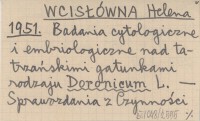 WCISŁÓWNA Helena
1951. Badania cytologiczne
i embriologiczne nad ta-
trzańskimi gatunkami
rodzaju Doronicum L. —
Sprawozdania z Czynności